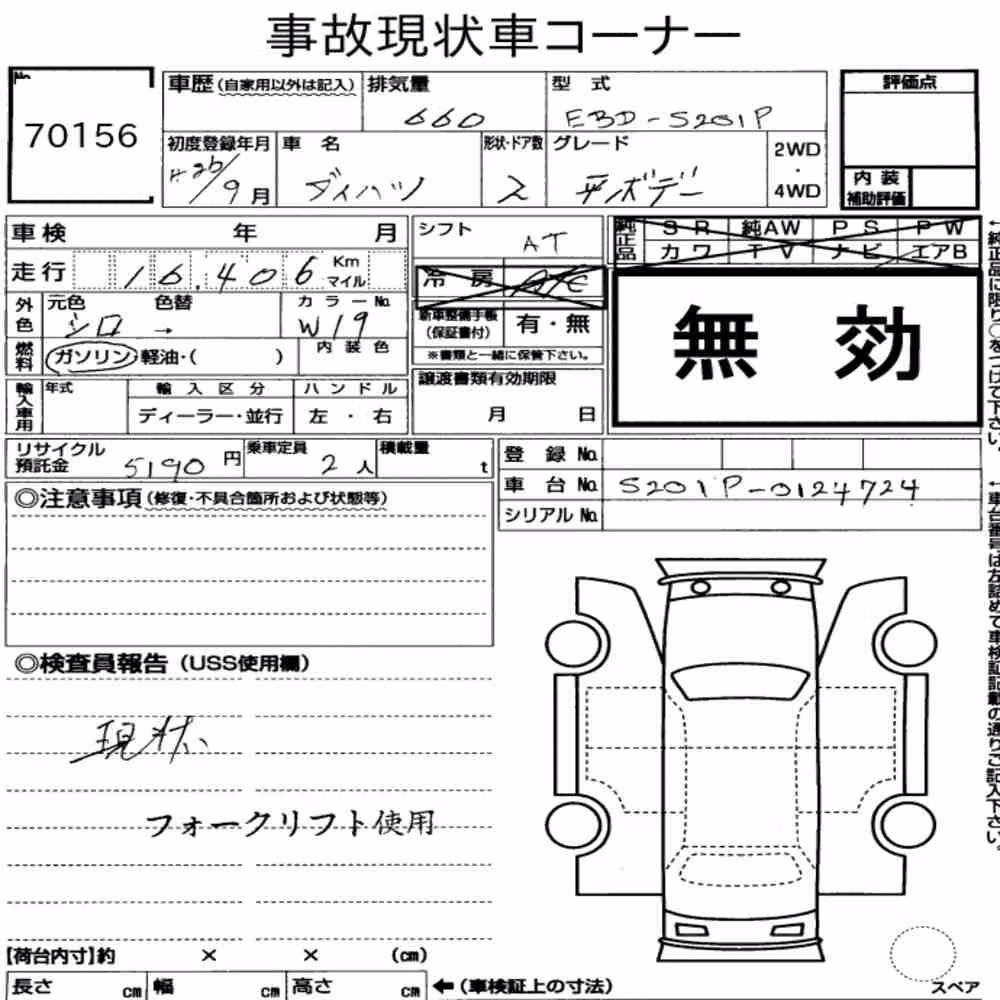 事故現状車コーナー
No.
70156
車歴(自家用以外は記入) 排気量 型式
660 EBD-S201P
評価点
初度登録年月 車名 形状・ドア数 グレード 2WD・4WD
H26/9月 ダイハツ 2 平ボデー
内装補助評価
車検 年 月
シフト AT
純正品 SR 純AW PS PW
カワ TV ナビ エアB
走行 16,406 Km マイル
冷房 A/C
無効
外色 元色 色替 カラーNo.
シロ → W19
新車整備手帳(保証書付) 有・無
※書類と一緒に保管下さい。
燃料 ガソリン・軽油・( ) 内装色
輸入車用 年式 輸入区分 ハンドル
ディーラー・並行 左・右
譲渡書類有効期限
月 日
←純正品に限り○をつけて下さい。
リサイクル預託金 5190円 乗車定員 2人 積載量 t
登録No.
車台No. S201P-0124724
シリアルNo.
←車台番号は左詰めで車検証記載の通りご記入下さい。
◎注意事項(修復・不具合箇所および状態等)
◎検査員報告(USS使用欄)
現状
フォークリフト使用
【荷台内寸】約 × × (cm)
長さ cm 幅 cm 高さ cm ←(車検証上の寸法)
スペア